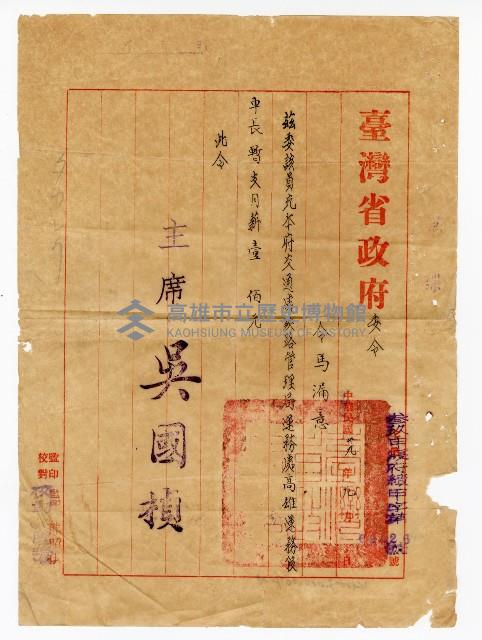 臺灣省政府委令
中華民國卅九年九月
令馬滿意
茲委該員充本府交通處鐵路管理局運務處高雄運務段
車長暫支月薪壹佰元
此令
主席吳國楨
監印
校對
號
高雄市立歷史博物館
KAOHSIUNG MUSEUM OF HISTORY